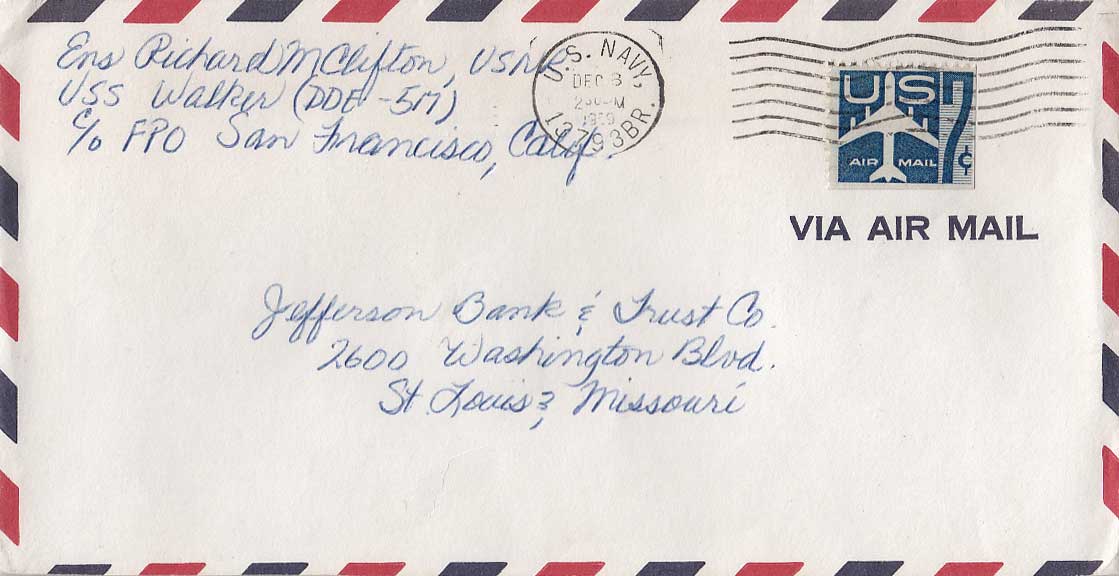 Ens Richard M Clifton, USNR
USS Walker (DDE-517)
c/o FPO San Francisco, Calif.
U.S. NAVY
DEC 8
1959
13793 BR.
US 7¢
AIR MAIL
VIA AIR MAIL
Jefferson Bank & Trust Co.
2600 Washington Blvd.
St. Louis 3, Missouri